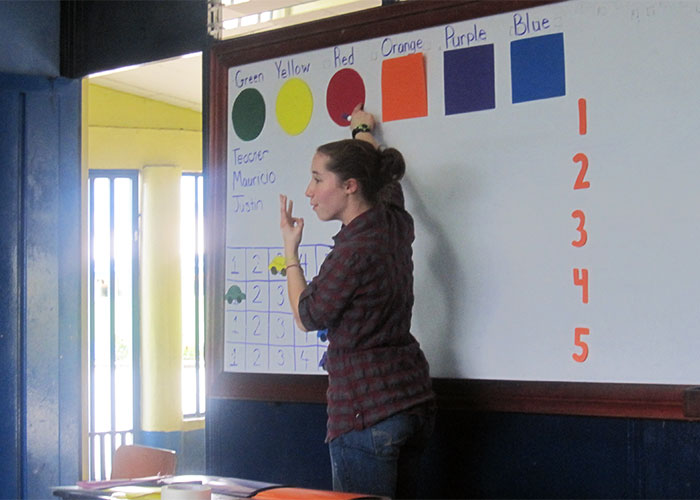 Green Yellow Red Orange Purple Blue
Teacher
Mauricio
Justin
1
2
3
4
5
1 2 3 4
2 3
1 2 3 4
1 2 3 4